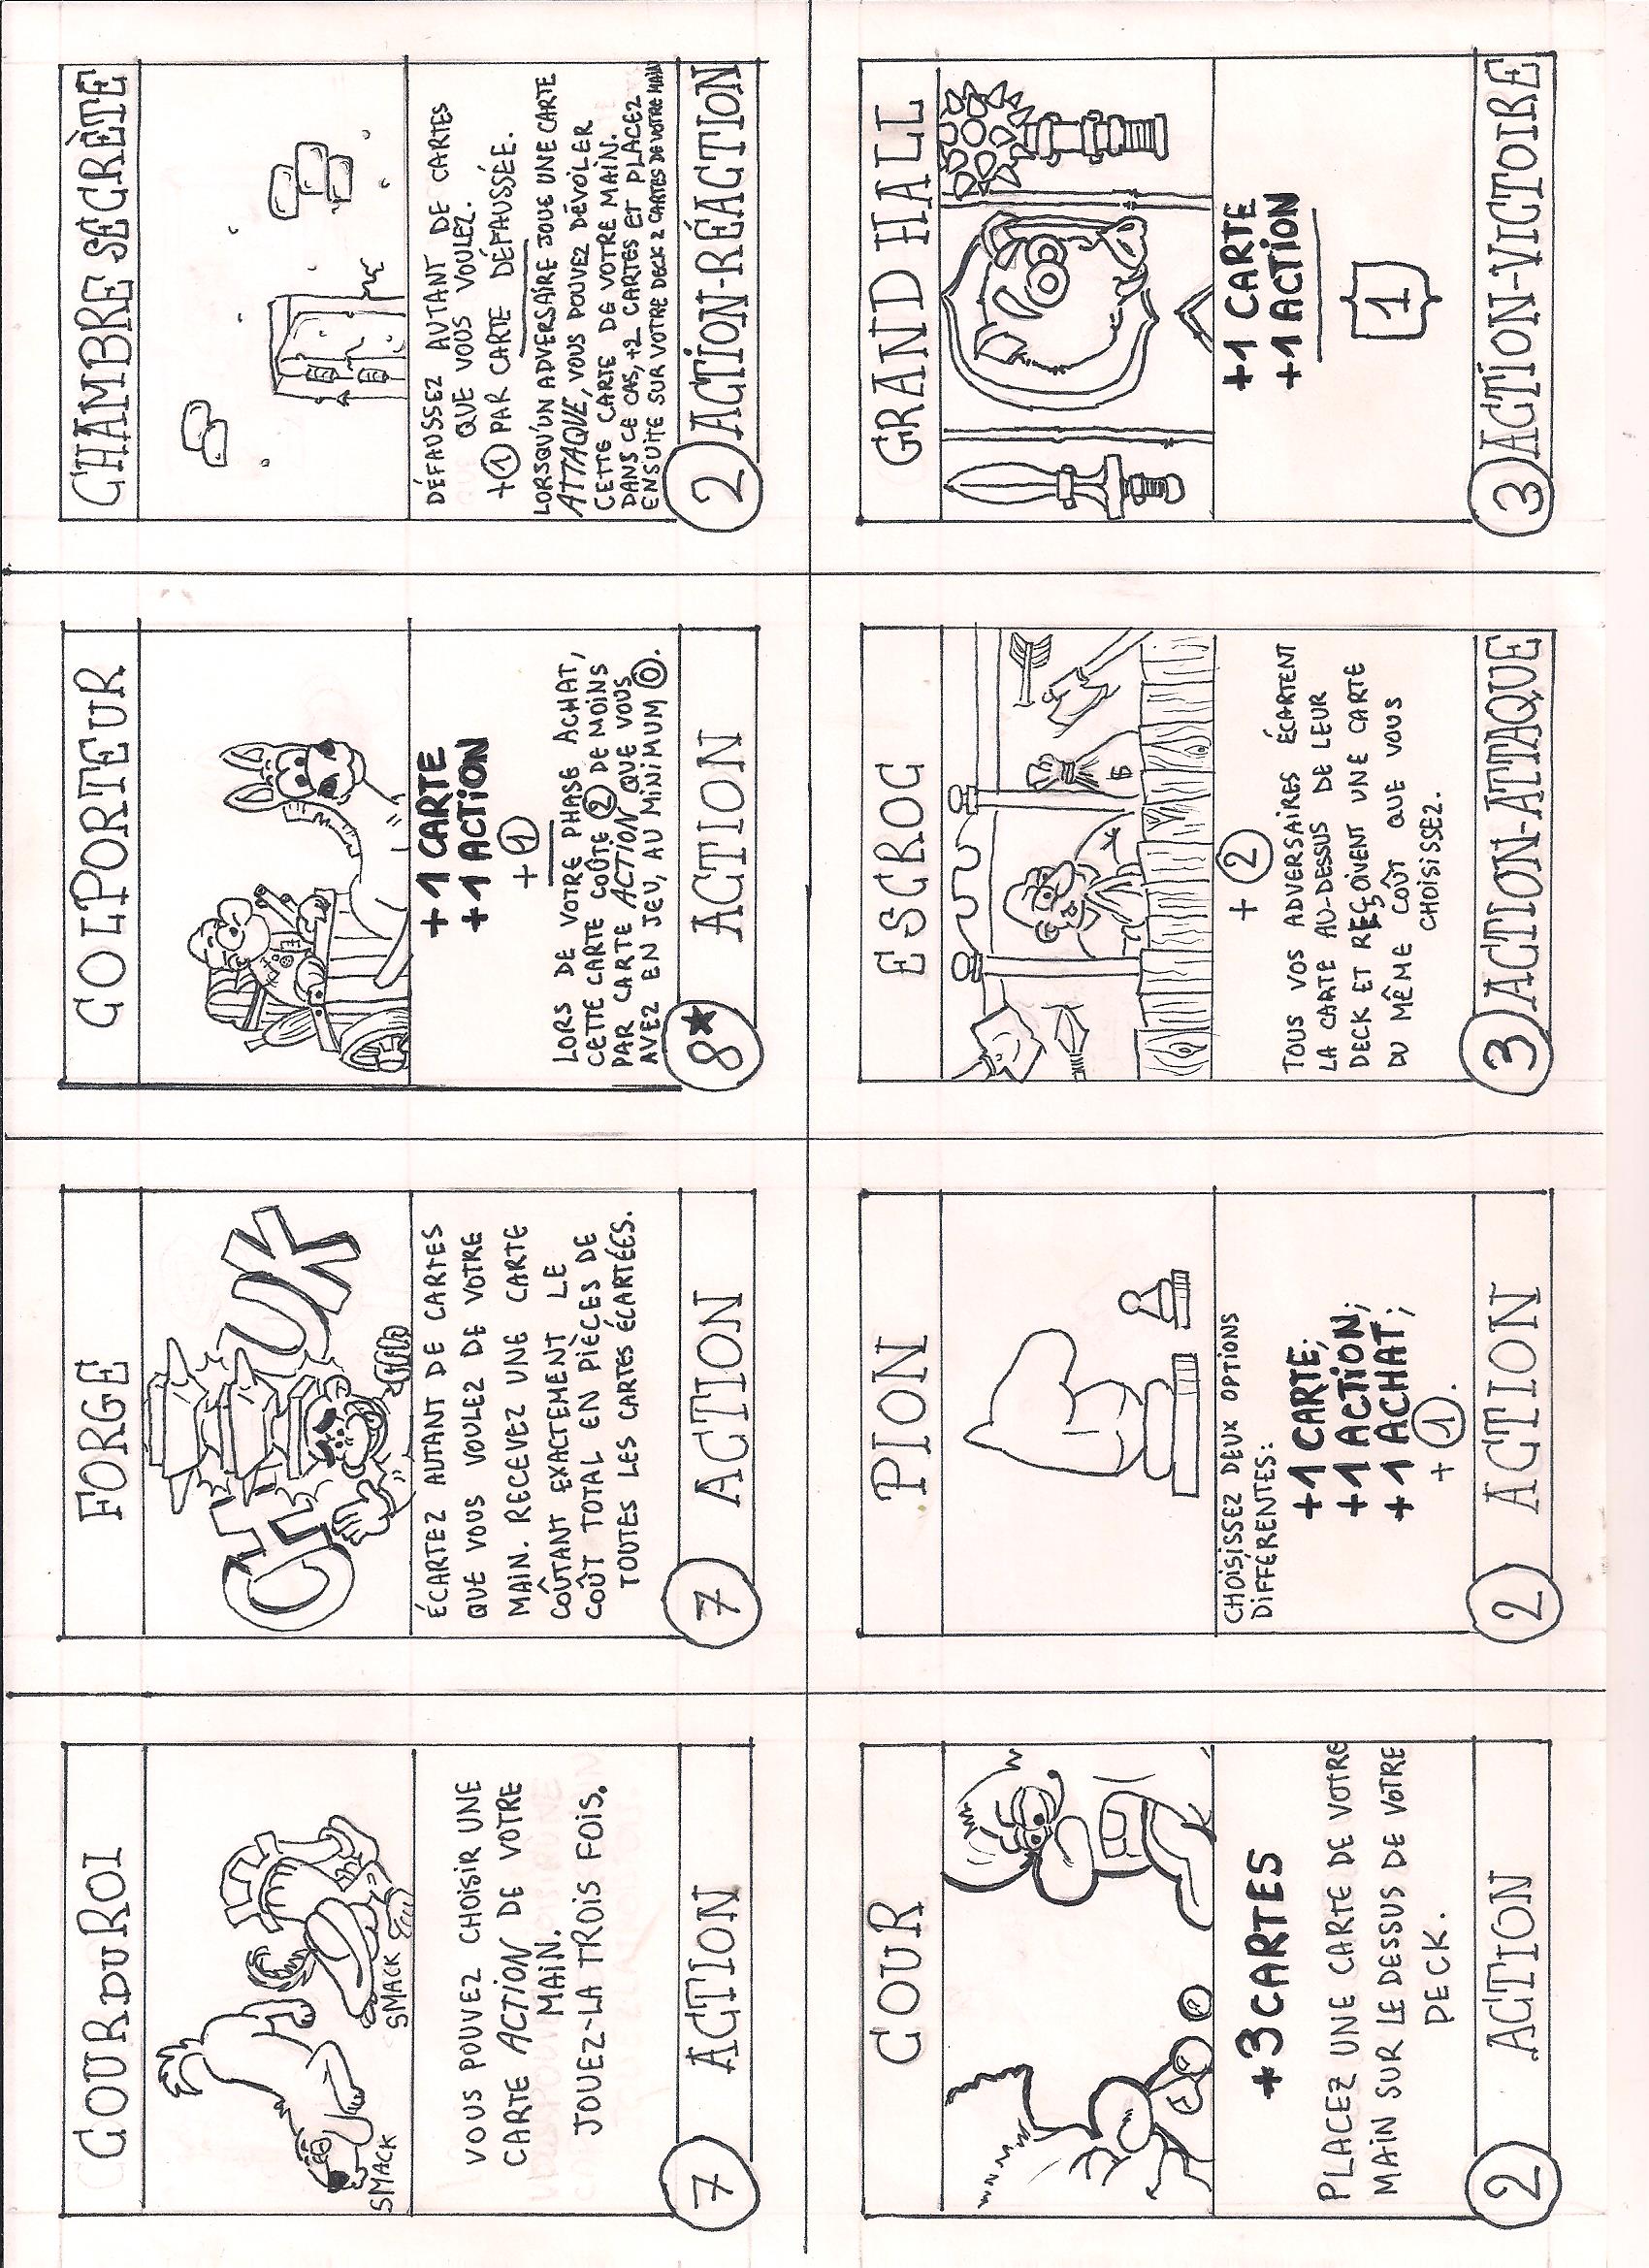 COUR DU ROI
SMACK
SMACK
VOUS POUVEZ CHOISIR UNE
CARTE ACTION DE VOTRE
MAIN.
JOUEZ-LA TROIS FOIS.
7 ACTION
FORGE
CH UK
ÉCARTEZ AUTANT DE CARTES
QUE VOUS VOULEZ DE VOTRE
MAIN. RECEVEZ UNE CARTE
COÛTANT EXACTEMENT LE
COÛT TOTAL EN PIÈCES DE
TOUTES LES CARTES ÉCARTÉES.
7 ACTION
COLPORTEUR
+1 CARTE
+1 ACTION
+1
LORS DE VOTRE PHASE ACHAT,
CETTE CARTE COÛTE 2 DE MOINS
PAR CARTE ACTION QUE VOUS
AVEZ EN JEU, AU MINIMUM 0.
8★ ACTION
CHAMBRE SECRÈTE
DÉFAUSSEZ AUTANT DE CARTES
QUE VOUS VOULEZ.
+1 PAR CARTE DÉFAUSSÉE.
LORSQU'UN ADVERSAIRE JOUE UNE CARTE
ATTAQUE, VOUS POUVEZ DÉVOILER
CETTE CARTE DE VOTRE MAIN.
DANS CE CAS, +2 CARTES ET PLACEZ
ENSUITE SUR VOTRE DECK 2 CARTES DE VOTRE MAIN
2 ACTION-RÉACTION
COUR
+3 CARTES
PLACEZ UNE CARTE DE VOTRE
MAIN SUR LE DESSUS DE VOTRE
DECK.
2 ACTION
PION
CHOISISSEZ DEUX OPTIONS
DIFFÉRENTES:
+1 CARTE;
+1 ACTION;
+1 ACHAT;
+1.
2 ACTION
ESCROC
$
+2
TOUS VOS ADVERSAIRES ÉCARTENT
LA CARTE AU-DESSUS DE LEUR
DECK ET REÇOIVENT UNE CARTE
DU MÊME COÛT QUE VOUS
CHOISISSEZ.
3 ACTION-ATTAQUE
GRAND HALL
+1 CARTE
+1 ACTION
1
3 ACTION-VICTOIRE